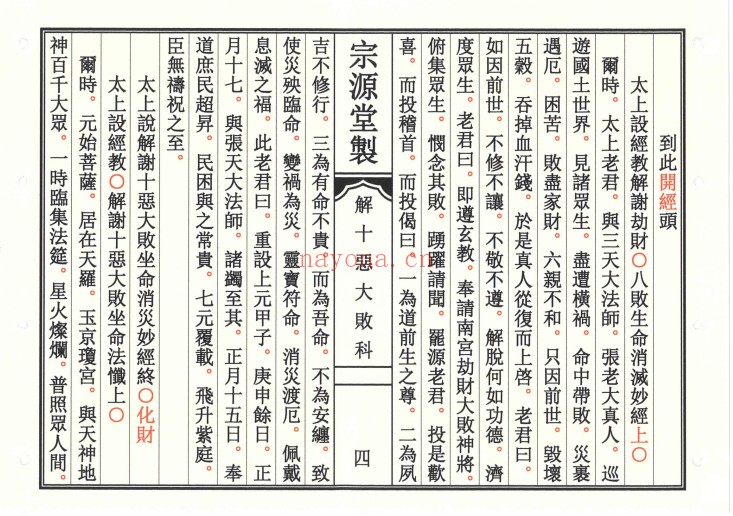 到此開經頭
太上設經教解謝劫財〇八敗生命消滅妙經上〇
爾時。太上老君。與三天大法師。張老大真人。巡
遊國土世界。見諸眾生。盡遭橫禍。命中帶敗。災裹
遇厄。困苦。敗盡家財。六親不和。只因前世。毀壞
五穀。吞掉血汗錢。於是真人從復而上啓。老君曰。
如因前世。不修不讓。不敬不遵。解脫何如功德。濟
度眾生。老君曰。即遵玄教。奉請南宮劫財大敗神將。
俯集眾生。憫念其敗。踴躍請聞。罷源老君。投是歡
喜。而投稽首。而投偈曰。一為道前生之尊。二為夙
宗源堂製
解十惡大敗科
四
吉不修行。三為有命不貴。而為吾命。不為安纏。致
使災殃臨命。變禍為災。靈寶符命。消災渡厄。佩戴
息滅之福。此老君曰。重設上元甲子。庚申餘日。正
月十七。與張天大法師。諸蠲至其。正月十五日。奉
道庶民超昇。民困與之常貴。七元覆載。飛升紫庭。
臣無禱祝之至。
太上說解謝十惡大敗坐命消災妙經終〇化財
太上設經教〇解謝十惡大敗坐命法懺上〇
爾時。元始菩薩。居在天羅。玉京瓊宮。與天神地
神百千大眾。一時臨集法筵。星火燦爛。普照眾人間。
nayona.cn